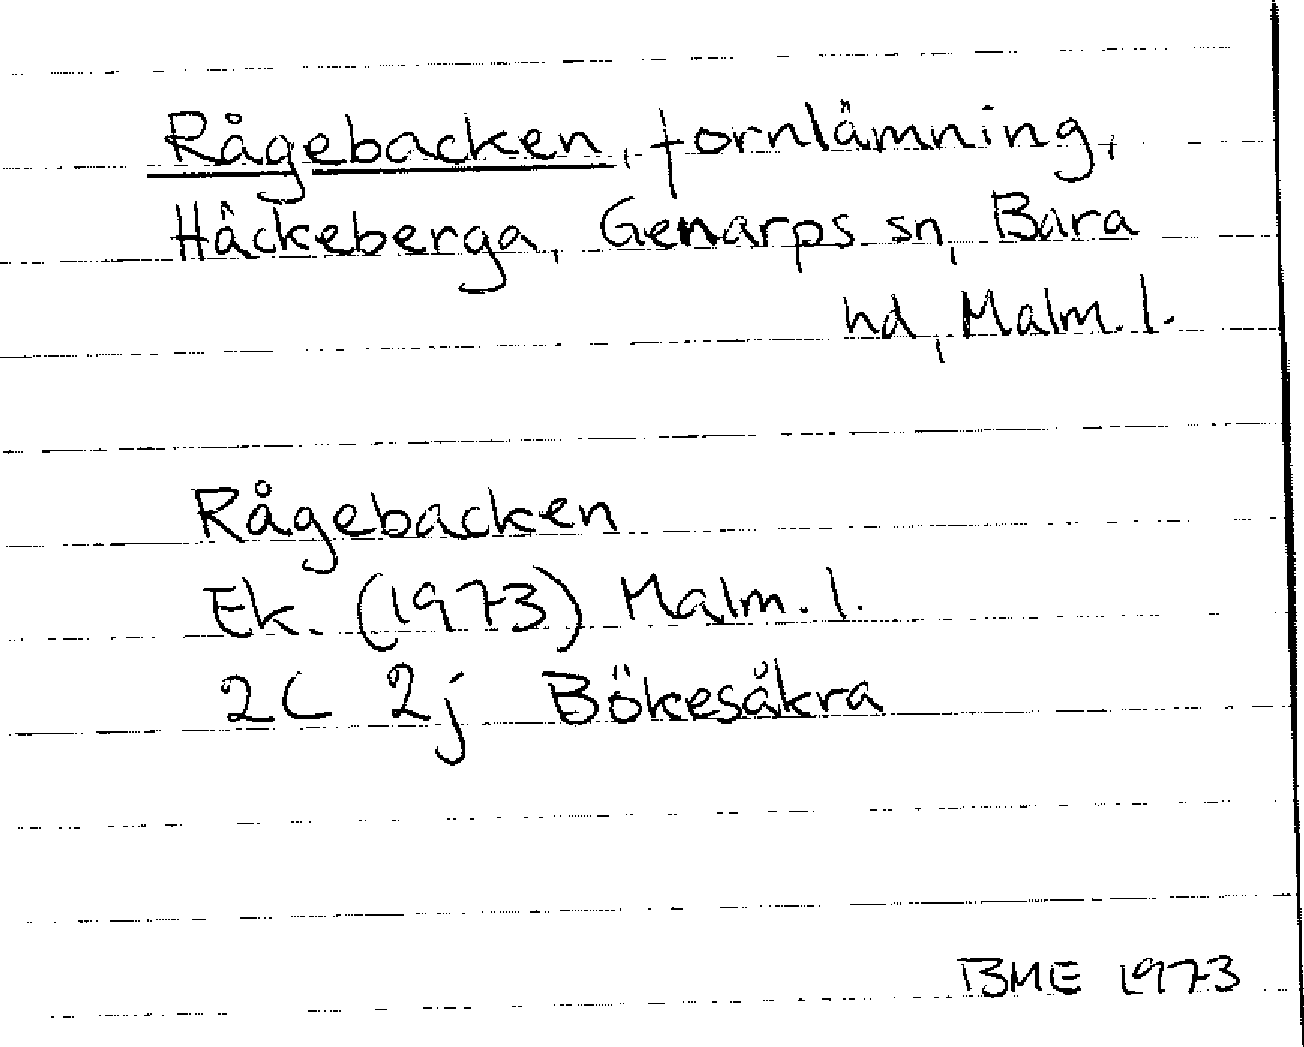 Rågebacken, fornlämning,
Häckeberga, Genarps sn, Bara
hd, Malm. l.
Rågebacken
Ek. (1973) Malm. l.
2C 2j Bökesåkra
BME 1973